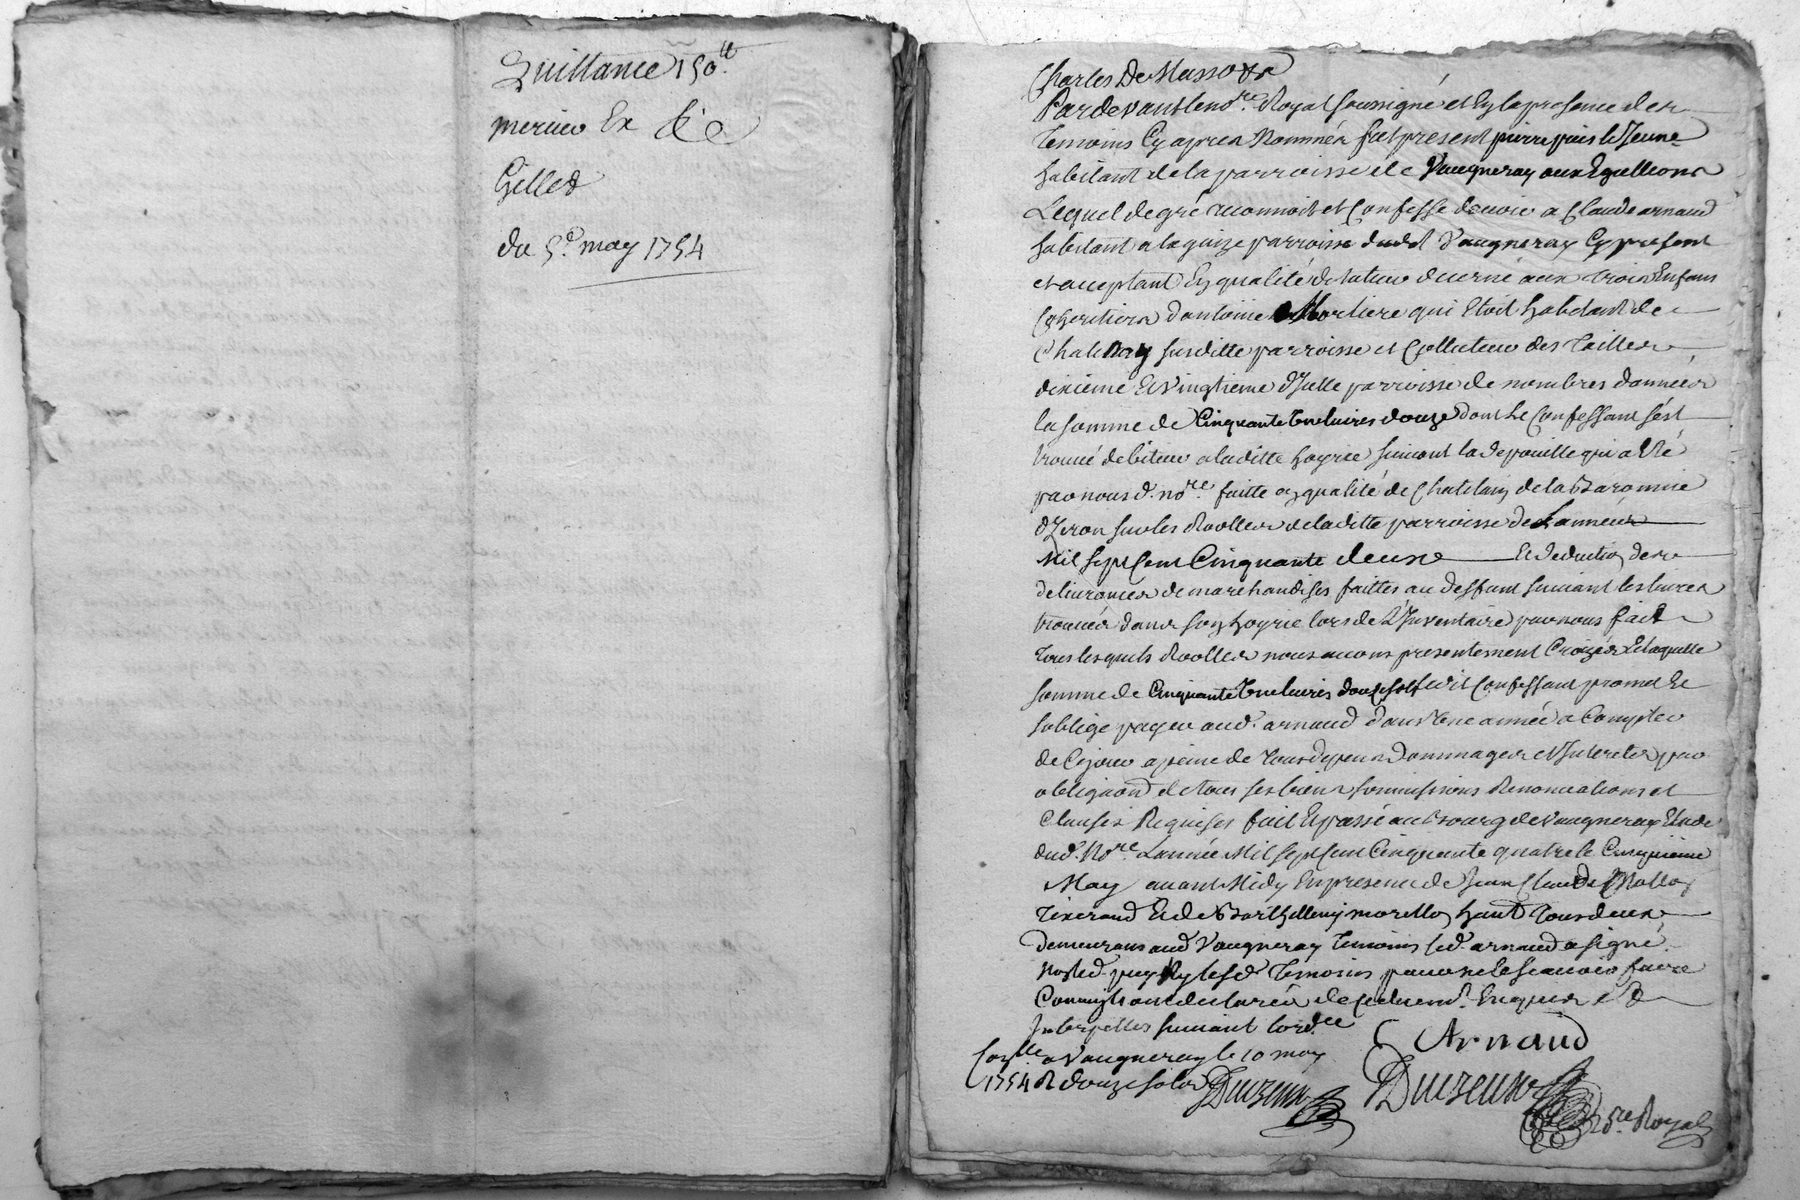 Quittance 150ll
mercier Ex
Gilled
du 5.e may 1754
Charles De Masso &a
Pardevant le no.re Royal soussigné et En la presence des
Temoins Cy apres Nommés fut present pierre puis le Jeune
habitant de la parroisse de Vaugneray aux Equilleons
Lequel de gré reconnoit et Confesse devoir a Claude arnaud
habitant a la parroisse dud.t Vaugneray Cy present
et acceptant En qualité de tuteur decerné aux trois Enfans
Coheritiers d'antoine Morliere qui Etoit habitant de
Chatenay susditte parroisse et Collecteur des Tailles
dixieme Et Vingtieme d'Icelle parroisse de nombres d'années
la somme de Cinquante Une livres douze dont Le Confessant s'est
trouvé debiteur a laditte hoyrie suivant la depouille qui a Eté
par nous d. no.re faitte en qualité de Chatelain de la Baronnie
d'Izeron sur les Roolles de laditte parroisse de Lannée
Mil sept Cent Cinquante deux Et deduction des
delivrances de marchandises faittes au deffunt suivant les livres
trouvés dans son hoyrie lors de L'Inventaire par nous fait
tous lesquels Roolles nous avons presentement Croizés Et laquelle
somme de Cinquante Une livres douze sols led.t Confessant promet Et
s'oblige payer aud. arnaud dans Une année a Compter
de Cejour a peine de tous depens Dommages et Interets par
obligaon de tous ses biens soumissions Renonciations et
Clauses Requises fait Et passé au Bourg de Vaugneray Etude
dud. No.re L'année Mil sept Cent Cinquante quatre le Cinquieme
May avant Midy En presence de Jean Claude
Tixerand Et de Barthellemy morellon tous deux
demeurans aud Vaugneray Temoins led. arnaud a signé
Non led. puy Ny lesd. Temoins pour ne le scavoir faire
Comme ils ont declaré de ce duement Enquis &
Interpellés suivant l'ord.ce
Con.llé a Vaugneray le 10 may
1754 R douze sols
Arnaud
Duizeux
Duizeux
No.re Royal